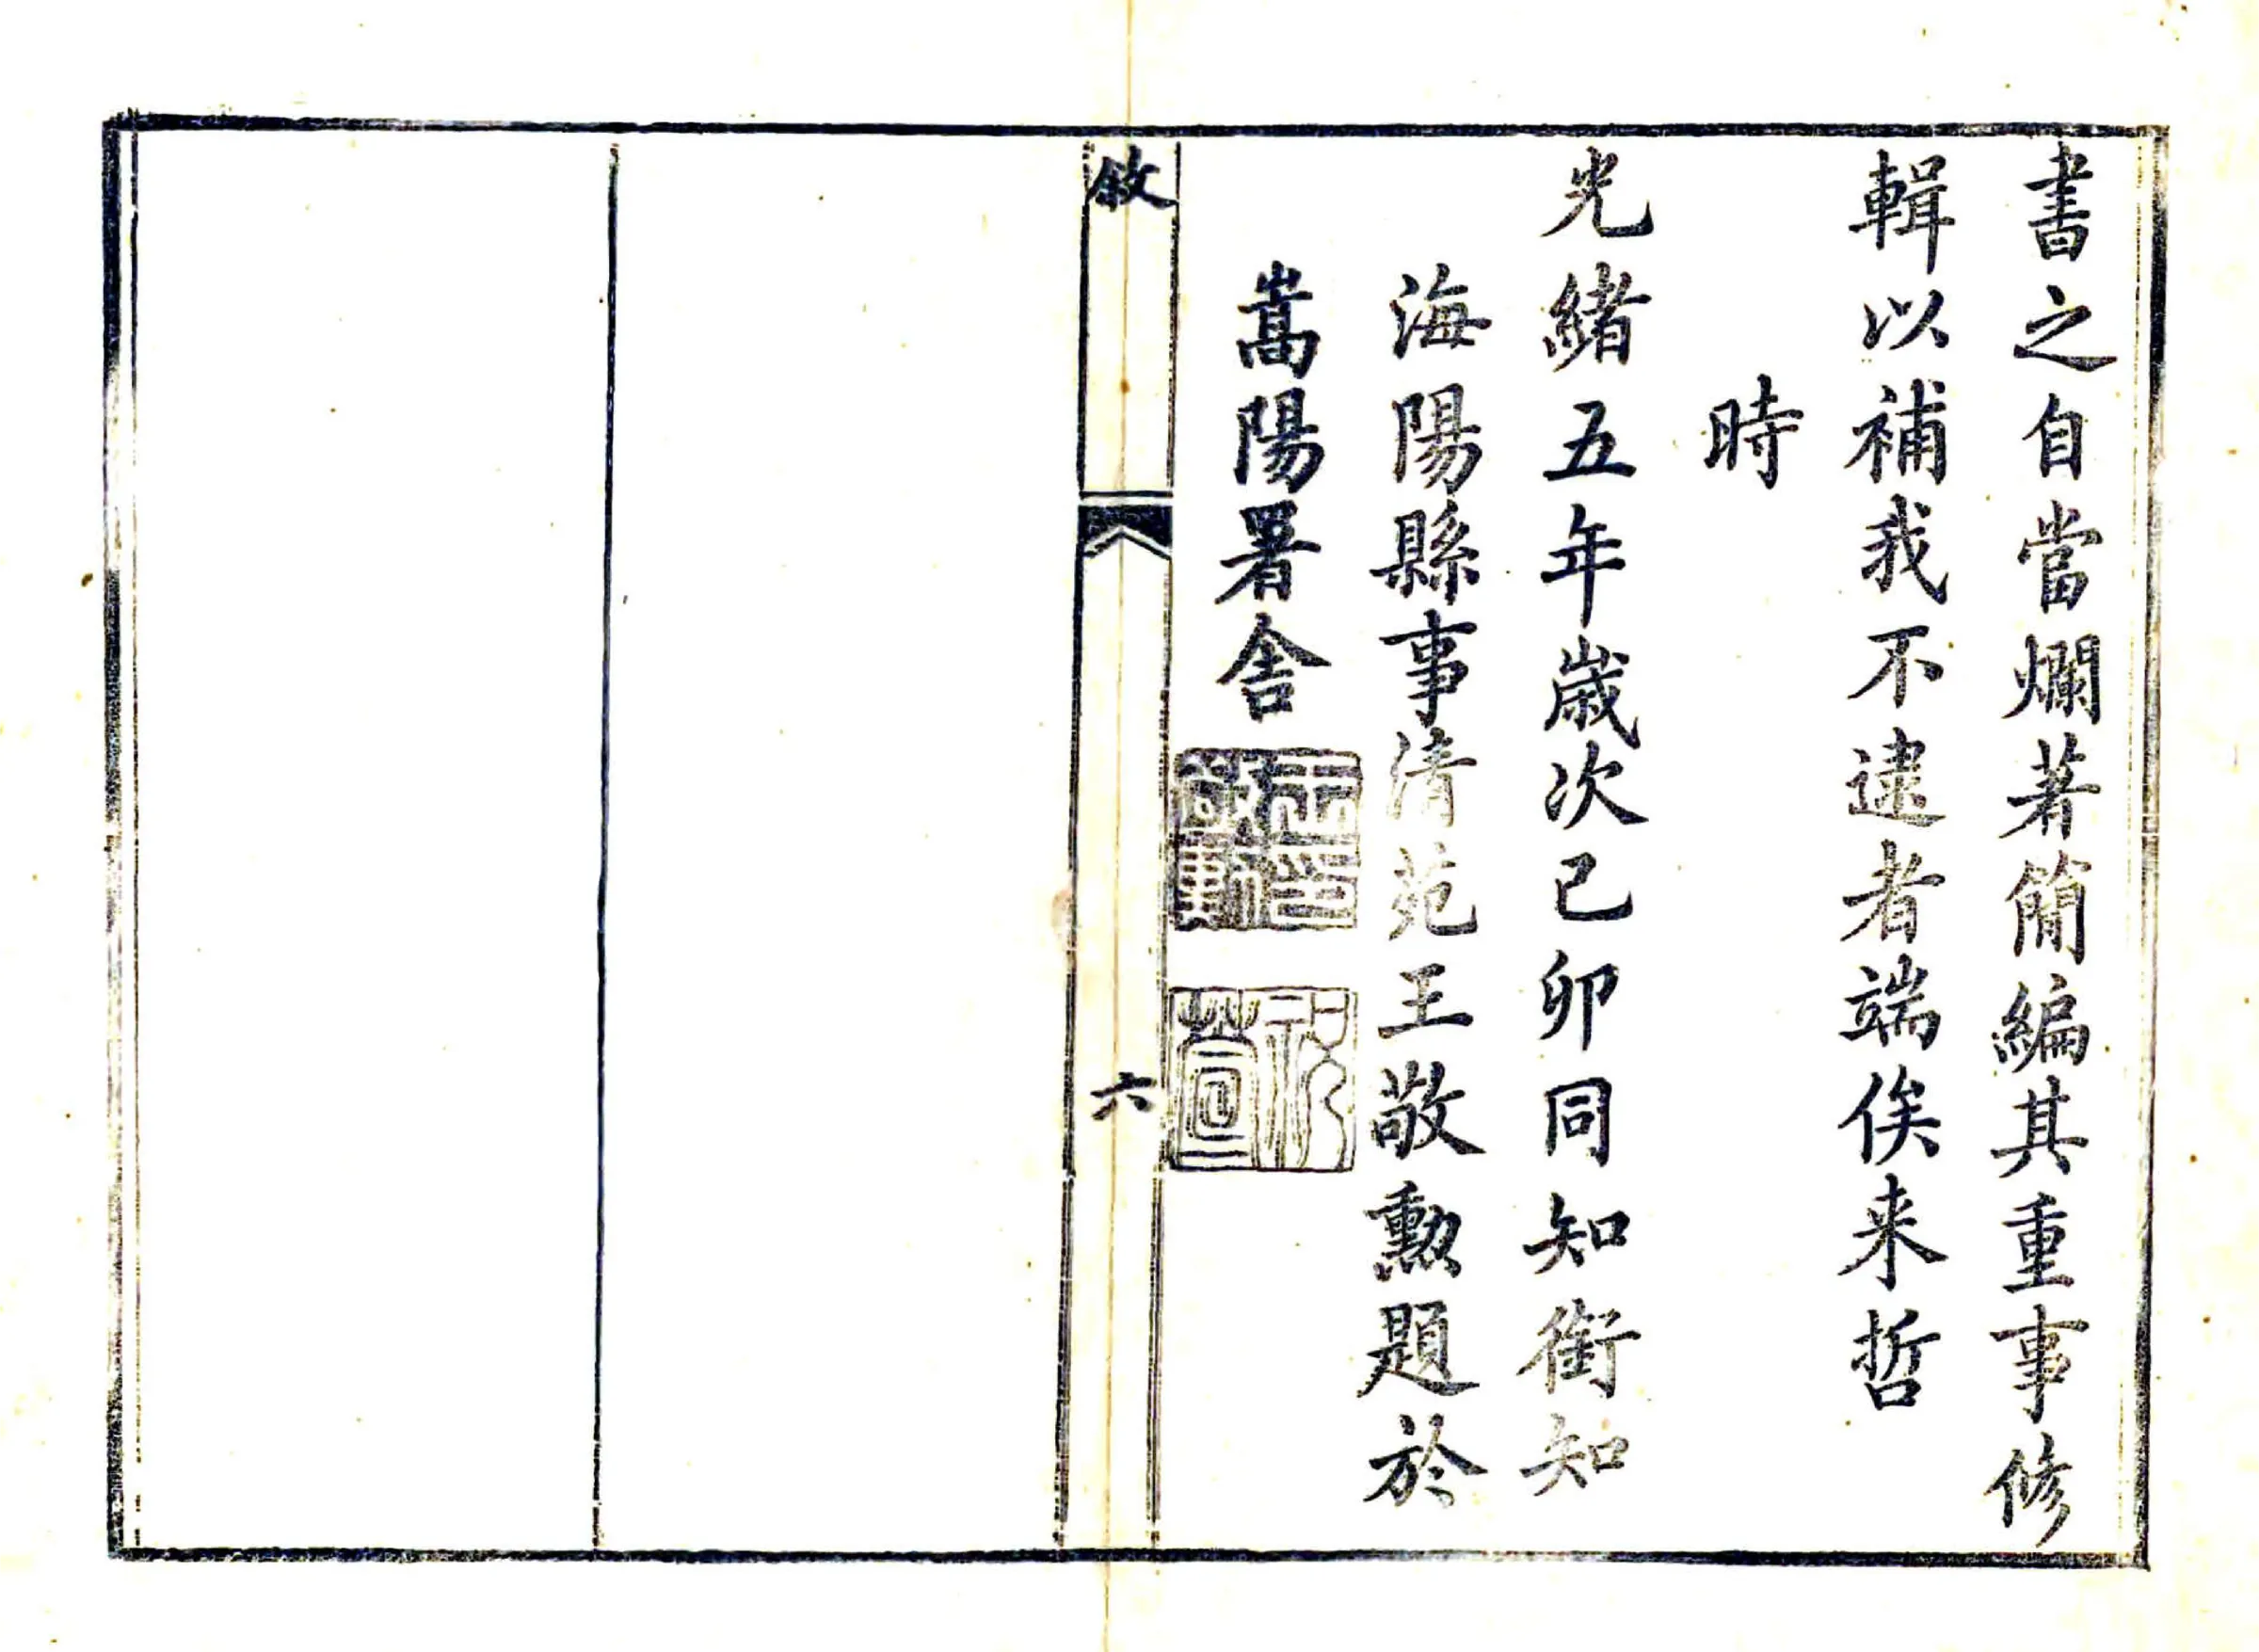 書之自當爛著簡編其重事修
輯以補我不逮者端俟来哲
時
光緒五年歲次己卯同知銜知
海陽縣事清苑王敬勳題於
嵩陽署舍
王印敬勳
敘
六